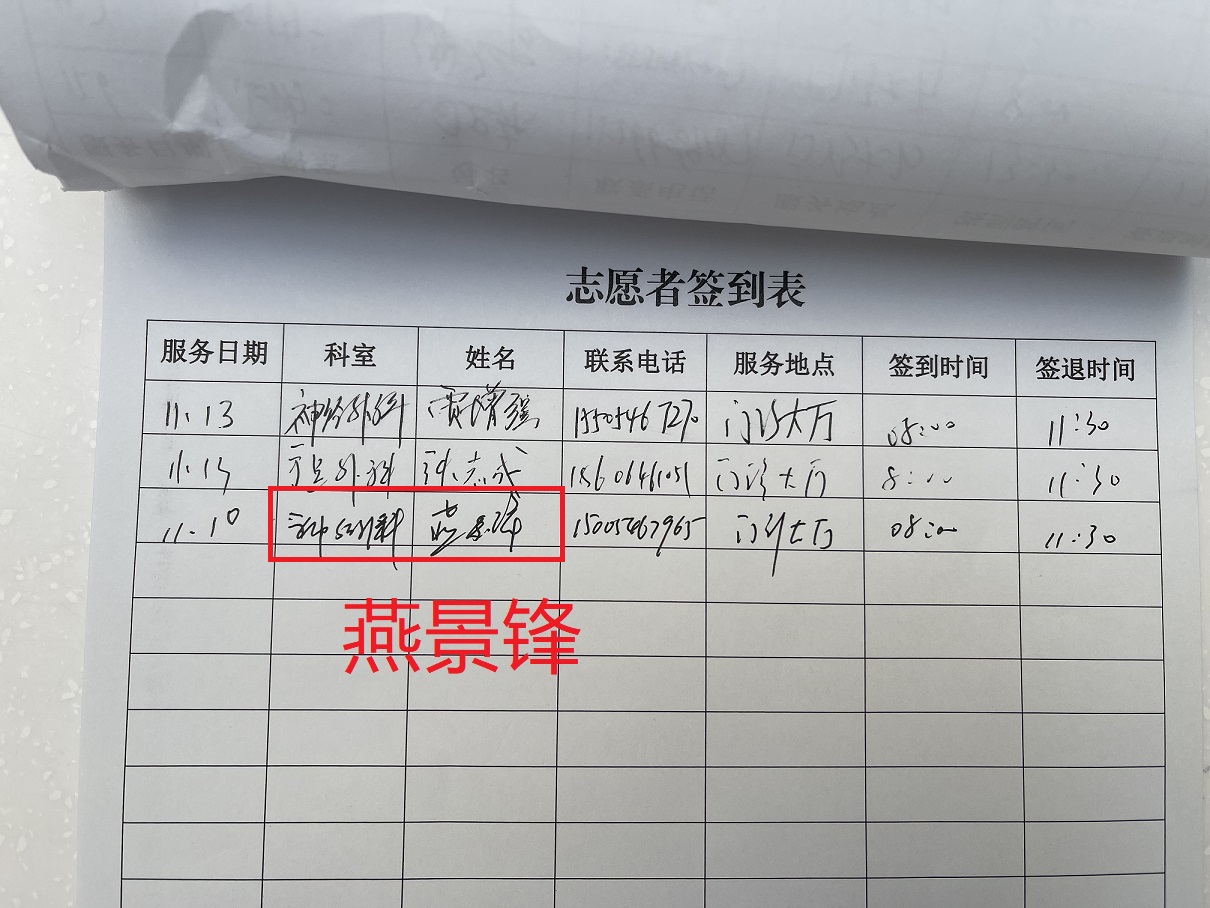 志愿者签到表
服务日期 科室 姓名 联系电话 服务地点 签到时间 签退时间
11.13 神经外科 贾增强 15505467270 门诊大厅 08:00 11:30
11.13 外科 门诊大厅 8:00 11:30
11.10 神经外科 燕景锋 15005467965 门诊大厅 08:00 11:30
燕景锋